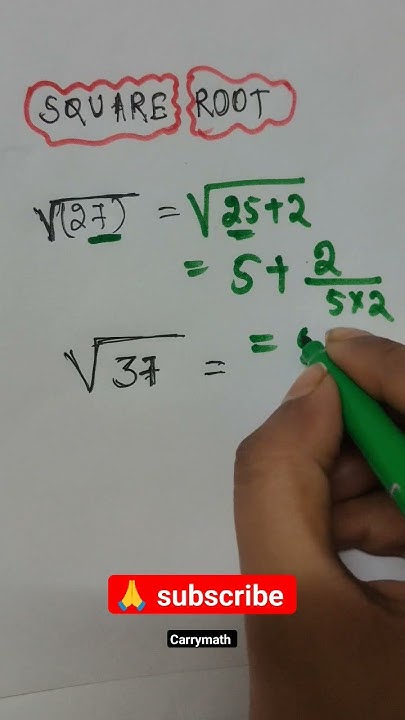 SQUARE ROOT
√(27) = √25+2
= 5 + 2/5×2
√37 = =
🙏 subscribe
Carrymath